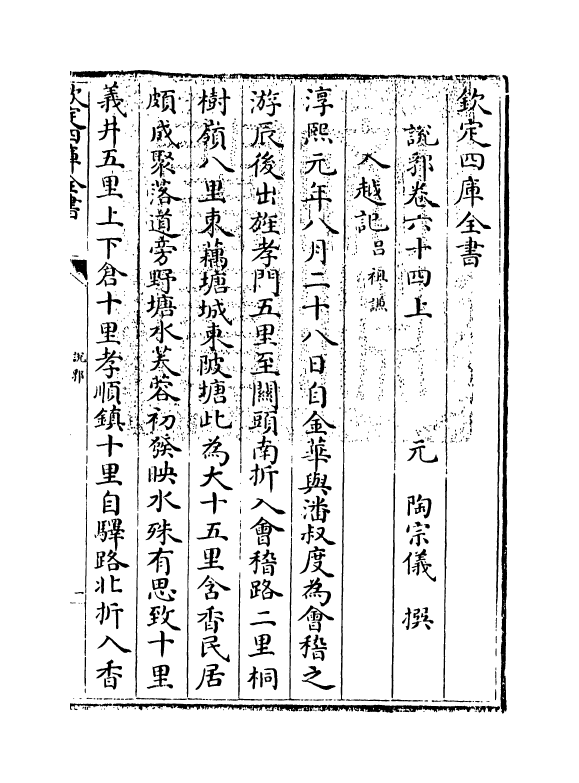 欽定四庫全書
說郛卷六十四上 元 陶宗儀 撰
入越記 呂祖謙
淳熙元年八月二十八日自金華與潘叔度為會稽之
游辰後出旌孝門五里至關頭南折入會稽路二里桐
樹嶺八里東藕塘城東陂塘此為大十五里含香民居
頗成聚落道旁野塘水芙蓉初發映水殊有思致十里
義井五里上下倉十里孝順鎮十里自驛路北折入香
欽定四庫全書
說郛
一